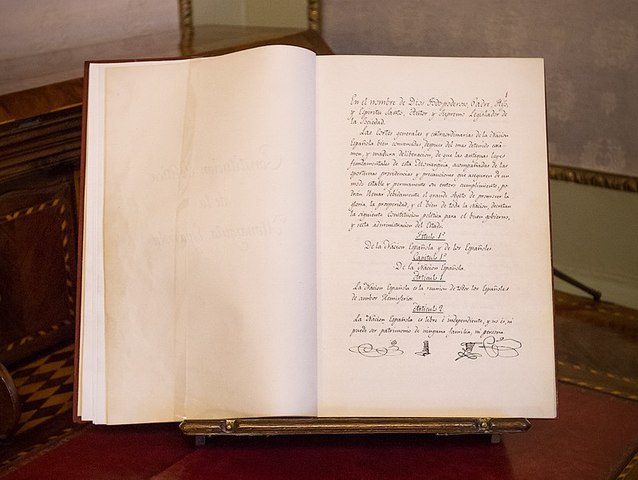 1
En el nombre de Dios Todopoderoso, Padre, Hijo,
y Espíritu Santo, Autor y Supremo Legislador de
la Sociedad.
Las Cortes generales y extraordinarias de la Nacion
Española bien convencidas, despues del mas detenido exá-
men, y madura deliberacion, de que las antiguas leyes
fundamentales de esta Monarquía, acompañadas de las
oportunas providencias y precauciones que aseguren de un
modo estable y permanente su entero cumplimiento, po
dran llenar debidamente el grande objeto de promover la
gloria, la prosperidad, y el bien de toda la Nacion, decretan
la siguiente Constitucion política para el buen gobierno,
y recta administracion del Estado.
Título 1º
De la Nacion Española y de los Españoles.
Capítulo 1º
De la Nacion Española.
Artículo 1
La Nacion Española es la reunion de todos los Españoles
de ambos hemisferios.
Artículo 2
La Nacion Española es libre é independiente, y no es, ni
puede ser patrimonio de ninguna familia, ni persona.